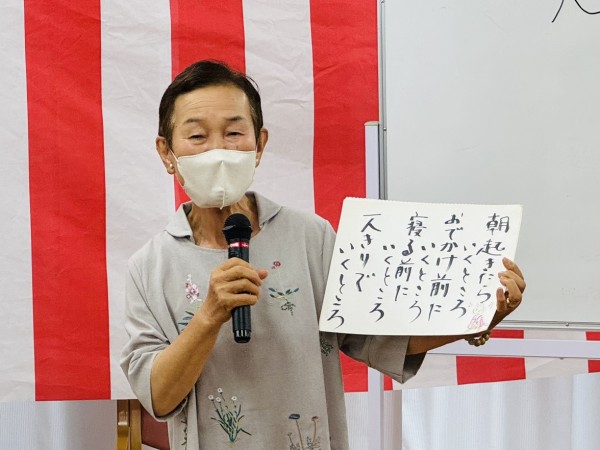 朝起きたら
いくところ
おでかけ前に
いくところ
寝る前に
いくところ
一人きりで
いくところ